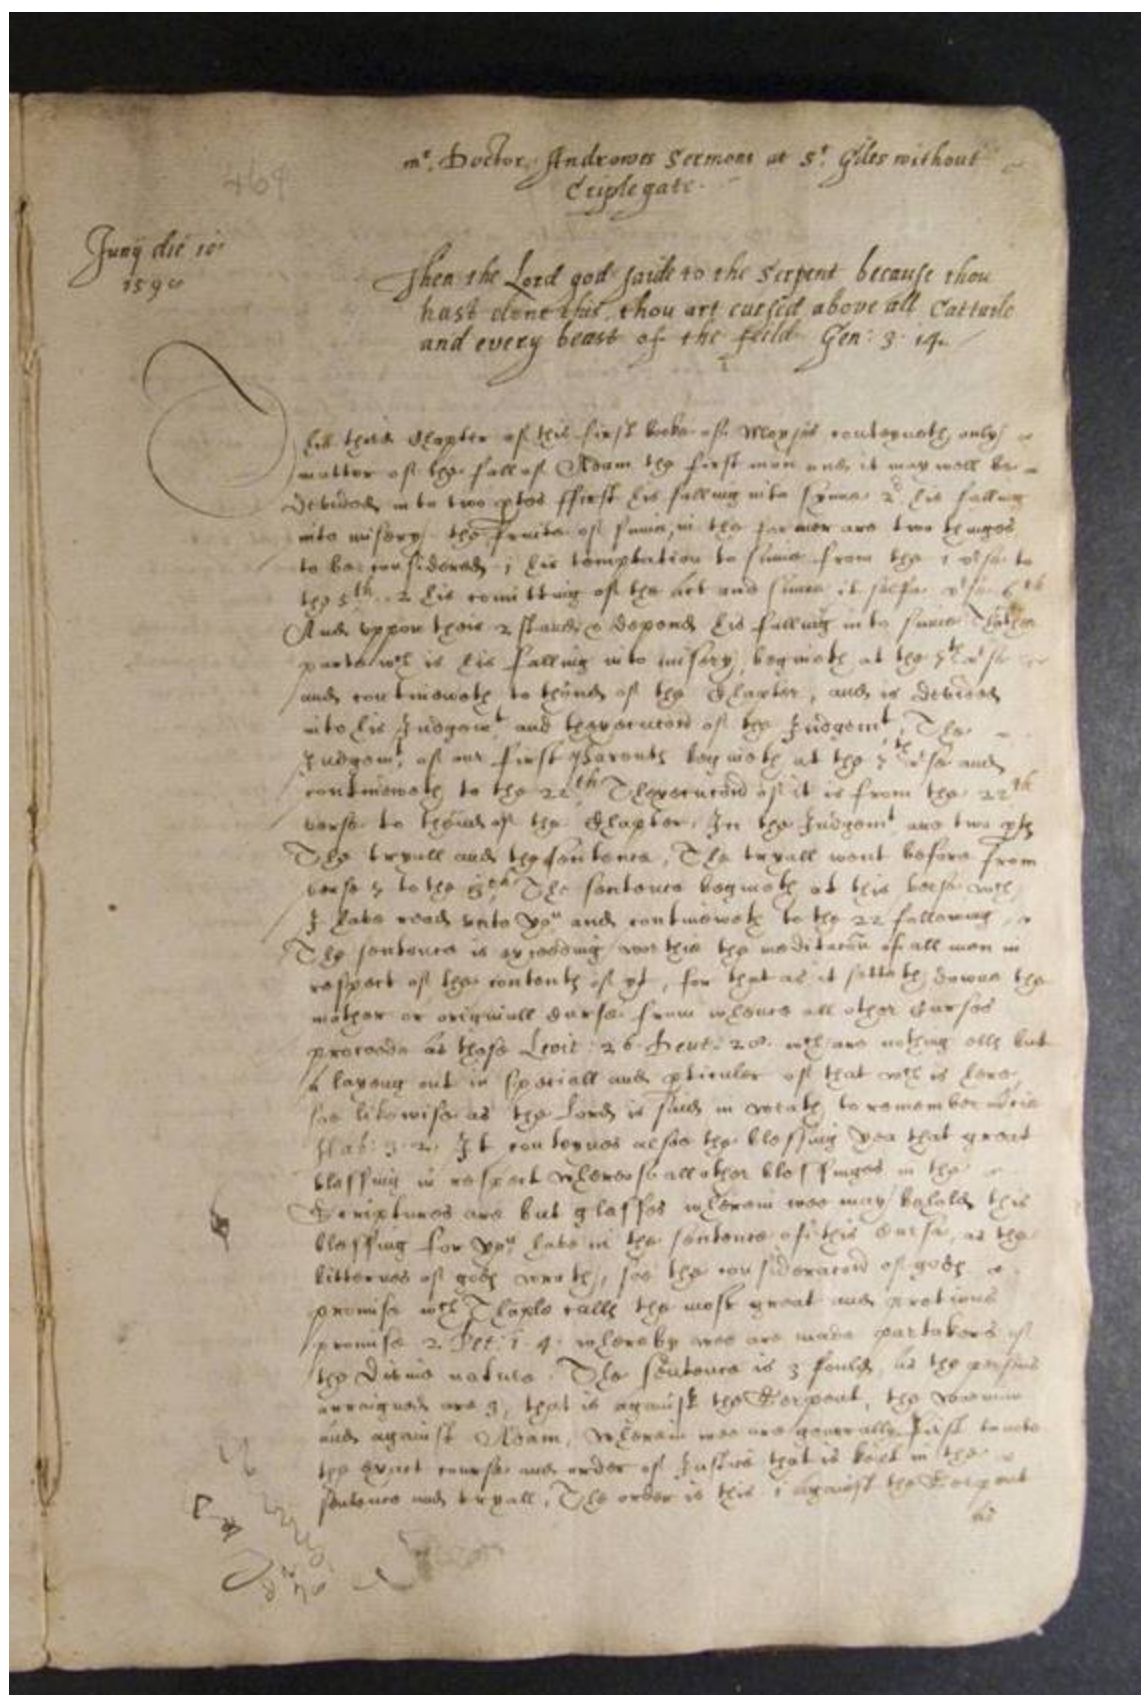 464
mr. Doctor Androwes Sermons at St. Giles without
Criplegate.
Junij die 10
1590
Then the Lord god saide to the Serpent because thou
hast done this, thou art cursed above all Cattaile
and every beast of the feild Gen: 3. 14.
This third Chapter of this first booke of Moyses conteyneth only
matter of the fall of Adam the first man and it may well be
devided into two ptes ffirst his falling into synne 2 his falling
into misery the fruite of sinne, in the former are two thinges
to be considered, 1 his temptation to sinne from the 1 verse to
the 5th. 2 his comitting of the act and sinne it selfe verse 6th
And uppon these 2 depend his falling into sinne Thother
parte wch is his falling into misery, beginneth at the 7th verse
and continueth to thend of the Chapter, and is devided
into his Judgemt and thexecucion of the Judgemt, The
Judgemt of our first Parents beginneth at the 7th verse and
continueth to the 22th Thexecucion of it is from the 22th
verse to thend of the Chapter. In the Judgemt are two pts
The tryall and the sentence, The tryall went before from
verse 7 to the The sentence beginneth at this verse wch
I have read unto you and continueth to the 22 following
The sentence is exceeding worthie the meditacion of all men in
respect of the contents of yt, for that as it setteth downe the
mother or originall Curse from whence all other Curses
proceede as those Levit: 26 Deut: 28. wch are nothing ells but
a layeng out in speciall and pticuler of that wch is here
soe likewise as the Lord is said in wrath to remember
Hab: 3. 2. It conteynes alsoe the blessing yea that great
blessing in respect whereof all other blessinges in the
Scriptures are but glasses wherein wee may behold this
blessing for you have in the sentence of this Curse, as the
bitternes of gods wrath, soe the consideracion of gods
promise wch calls the most great and pretious
promise 2. Pet: 1. 4. whereby wee are made partakers of
the Divine nature. The sentence is 3 fould, as the persons
arraigned are 3, that is against the Serpent, the woman
and against Adam, wherein wee are generally First to note
the exact course and order of Justice that is kept in the
sentence and tryall, The order is this 1 against the Serpent
as